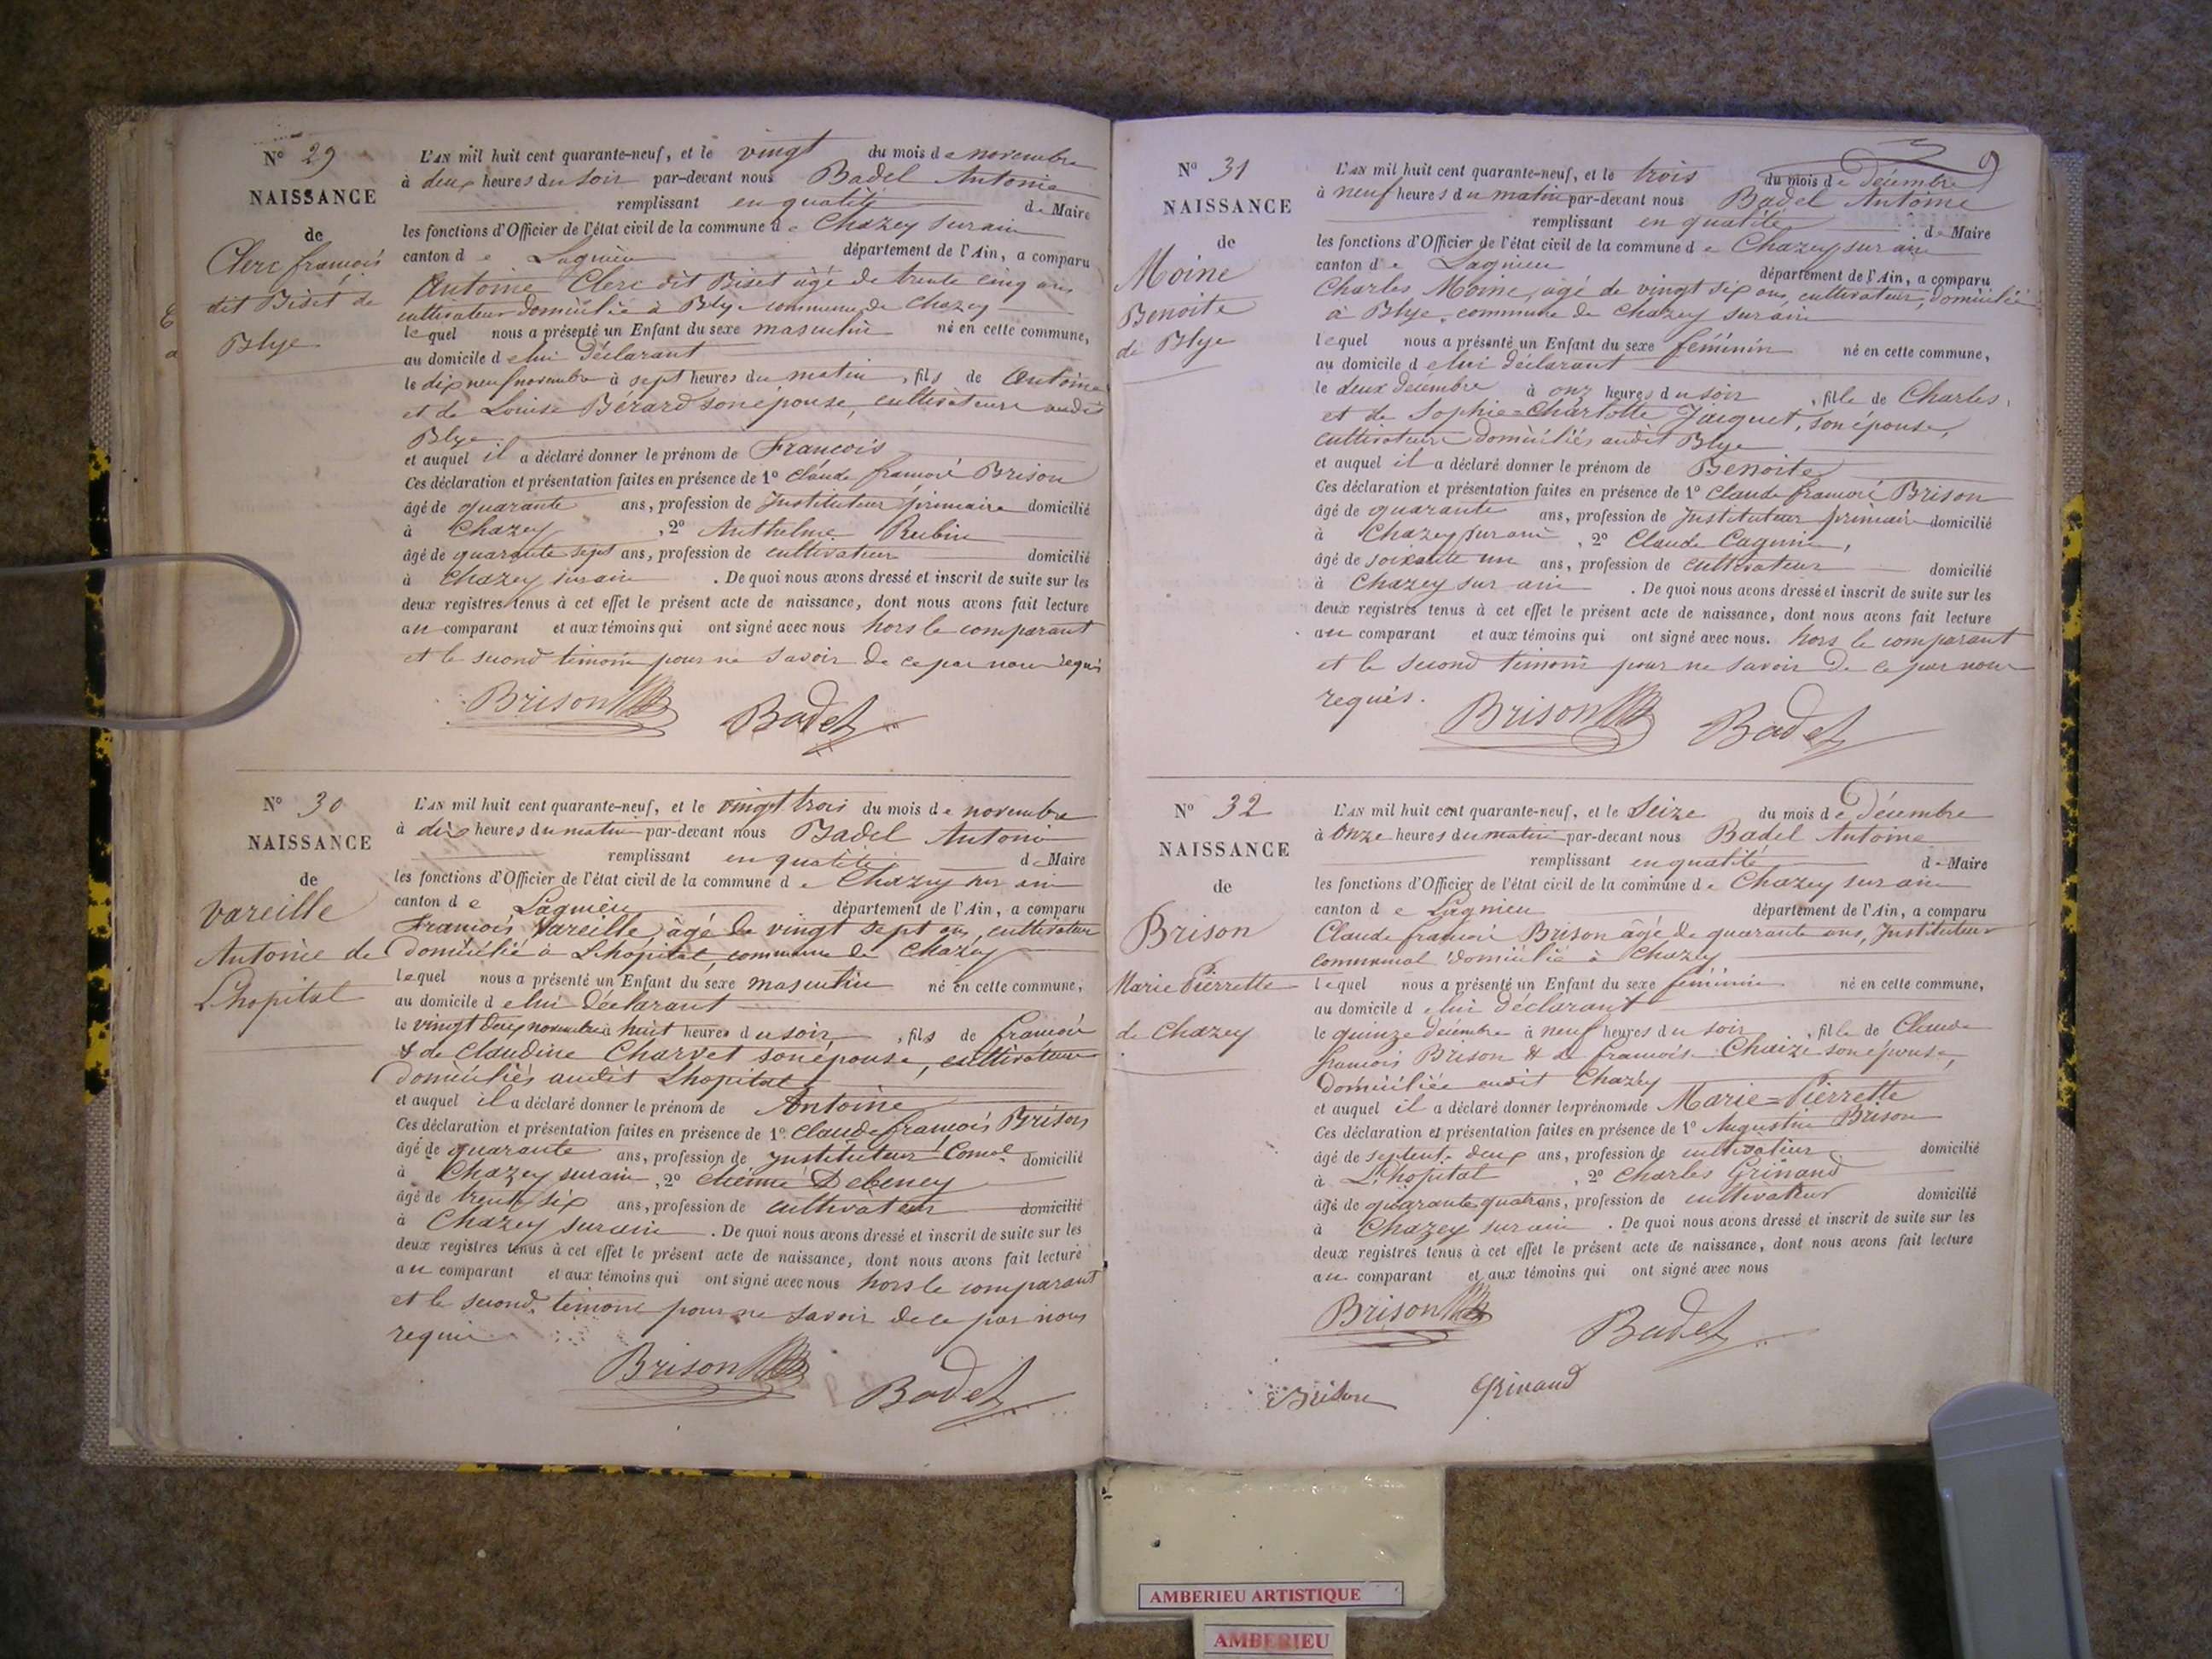 N° 29
NAISSANCE
de
Clerc françois
dit Biset de
Blye
L'AN mil huit cent quarante-neuf, et le vingt du mois de novembre
à deux heures du soir par-devant nous Badel Antoine
remplissant en qualité de Maire
les fonctions d'Officier de l'état civil de la commune de Chazey sur ain
canton de Lagnieu département de l'Ain, a comparu
Antoine Clerc dit Biset âgé de trente cinq ans
cultivateur domicilié à Blye commune de Chazey
lequel nous a présenté un Enfant du sexe masculin né en cette commune,
au domicile de lui Déclarant
le dix neuf novembre à sept heures du matin, fils de Antoine
et de Louise Bérard son épouse, cultivateurs audit
Blye
et auquel il a déclaré donner le prénom de François
Ces déclaration et présentation faites en présence de 1° Claude françois Brison
âgé de quarante ans, profession de Instituteur primaire domicilié
à Chazey, 2° Anthelme Rubin
âgé de quarante sept ans, profession de cultivateur domicilié
à Chazey sur ain. De quoi nous avons dressé et inscrit de suite sur les
deux registres tenus à cet effet le présent acte de naissance, dont nous avons fait lecture
au comparant et aux témoins qui ont signé avec nous hors le comparant
et le second témoin pour ne savoir de ce par nous requis
Brison Badel
N° 30
NAISSANCE
de
Vareille
Antoine de
Lhopital
L'AN mil huit cent quarante-neuf, et le vingt trois du mois de novembre
à dix heures du matin par-devant nous Badel Antoine
remplissant en qualité de Maire
les fonctions d'Officier de l'état civil de la commune de Chazey sur ain
canton de Lagnieu département de l'Ain, a comparu
François Vareille, âgé de vingt sept ans, cultivateur
domicilié à Lhopital, commune de Chazey
lequel nous a présenté un Enfant du sexe masculin né en cette commune,
au domicile de lui Déclarant
le vingt deux novembre à huit heures du soir, fils de françois
& de Claudine Charvet son épouse, cultivateurs
domiciliés audit Lhopital
et auquel il a déclaré donner le prénom de Antoine
Ces déclaration et présentation faites en présence de 1° Claude françois Brison
âgé de quarante ans, profession de Instituteur Comal domicilié
à Chazey sur ain, 2° étienne Debeney
âgé de trente six ans, profession de cultivateur domicilié
à Chazey sur ain. De quoi nous avons dressé et inscrit de suite sur les
deux registres tenus à cet effet le présent acte de naissance, dont nous avons fait lecture
au comparant et aux témoins qui ont signé avec nous hors le comparant
et le second témoin pour ne savoir de ce par nous
requis
Brison Badel
N° 31
NAISSANCE
de
Moine
Benoite
de Blye
9
L'AN mil huit cent quarante-neuf, et le trois du mois de Décembre
à neuf heures du matin par-devant nous Badel Antoine
remplissant en qualité de Maire
les fonctions d'Officier de l'état civil de la commune de Chazey sur ain
canton de Lagnieu département de l'Ain, a comparu
Charles Moine, âgé de vingt six ans, cultivateur, domicilié
à Blye, commune de Chazey sur ain
lequel nous a présenté un Enfant du sexe féminin né en cette commune,
au domicile de lui déclarant
le deux décembre à onz heures du soir, fille de Charles,
et de Sophie=Charlotte Jacquet, son épouse,
cultivateurs domiciliés audit Blye
et auquel il a déclaré donner le prénom de Benoite
Ces déclaration et présentation faites en présence de 1° Claude françois Brison
âgé de quarante ans, profession de Instituteur primaire domicilié
à Chazey sur ain, 2° Claude Cagnin,
âgé de soixante un ans, profession de cultivateur domicilié
à Chazey sur ain. De quoi nous avons dressé et inscrit de suite sur les
deux registres tenus à cet effet le présent acte de naissance, dont nous avons fait lecture
au comparant et aux témoins qui ont signé avec nous. hors le comparant
et le second témoin pour ne savoir de ce par nous
requis.
Brison Badel
N° 32
NAISSANCE
de
Brison
Marie Pierrette
de Chazey
L'AN mil huit cent quarante-neuf, et le Seize du mois de Décembre
à onze heures du matin par-devant nous Badel Antoine
remplissant en qualité de Maire
les fonctions d'Officier de l'état civil de la commune de Chazey sur ain
canton de Lagnieu département de l'Ain, a comparu
Claude françois Brison âgé de quarante ans, Instituteur
communal domicilié à Chazey
lequel nous a présenté un Enfant du sexe féminin né en cette commune,
au domicile de lui déclarant
le quinze décembre à neuf heures du soir, fille de Claude
françois Brison & de françoise Chaize son épouse,
domiciliée audit Chazey
et auquel il a déclaré donner les prénoms de Marie=Pierrette
Ces déclaration et présentation faites en présence de 1° Augustin Brison
âgé de septente deux ans, profession de cultivateur domicilié
à L'hopital, 2° Charles Grinand
âgé de quarante quatr ans, profession de cultivateur domicilié
à Chazey sur ain. De quoi nous avons dressé et inscrit de suite sur les
deux registres tenus à cet effet le présent acte de naissance, dont nous avons fait lecture
au comparant et aux témoins qui ont signé avec nous
Brison Badel
Brison Grinand
AMBERIEU ARTISTIQUE
AMBERIEU